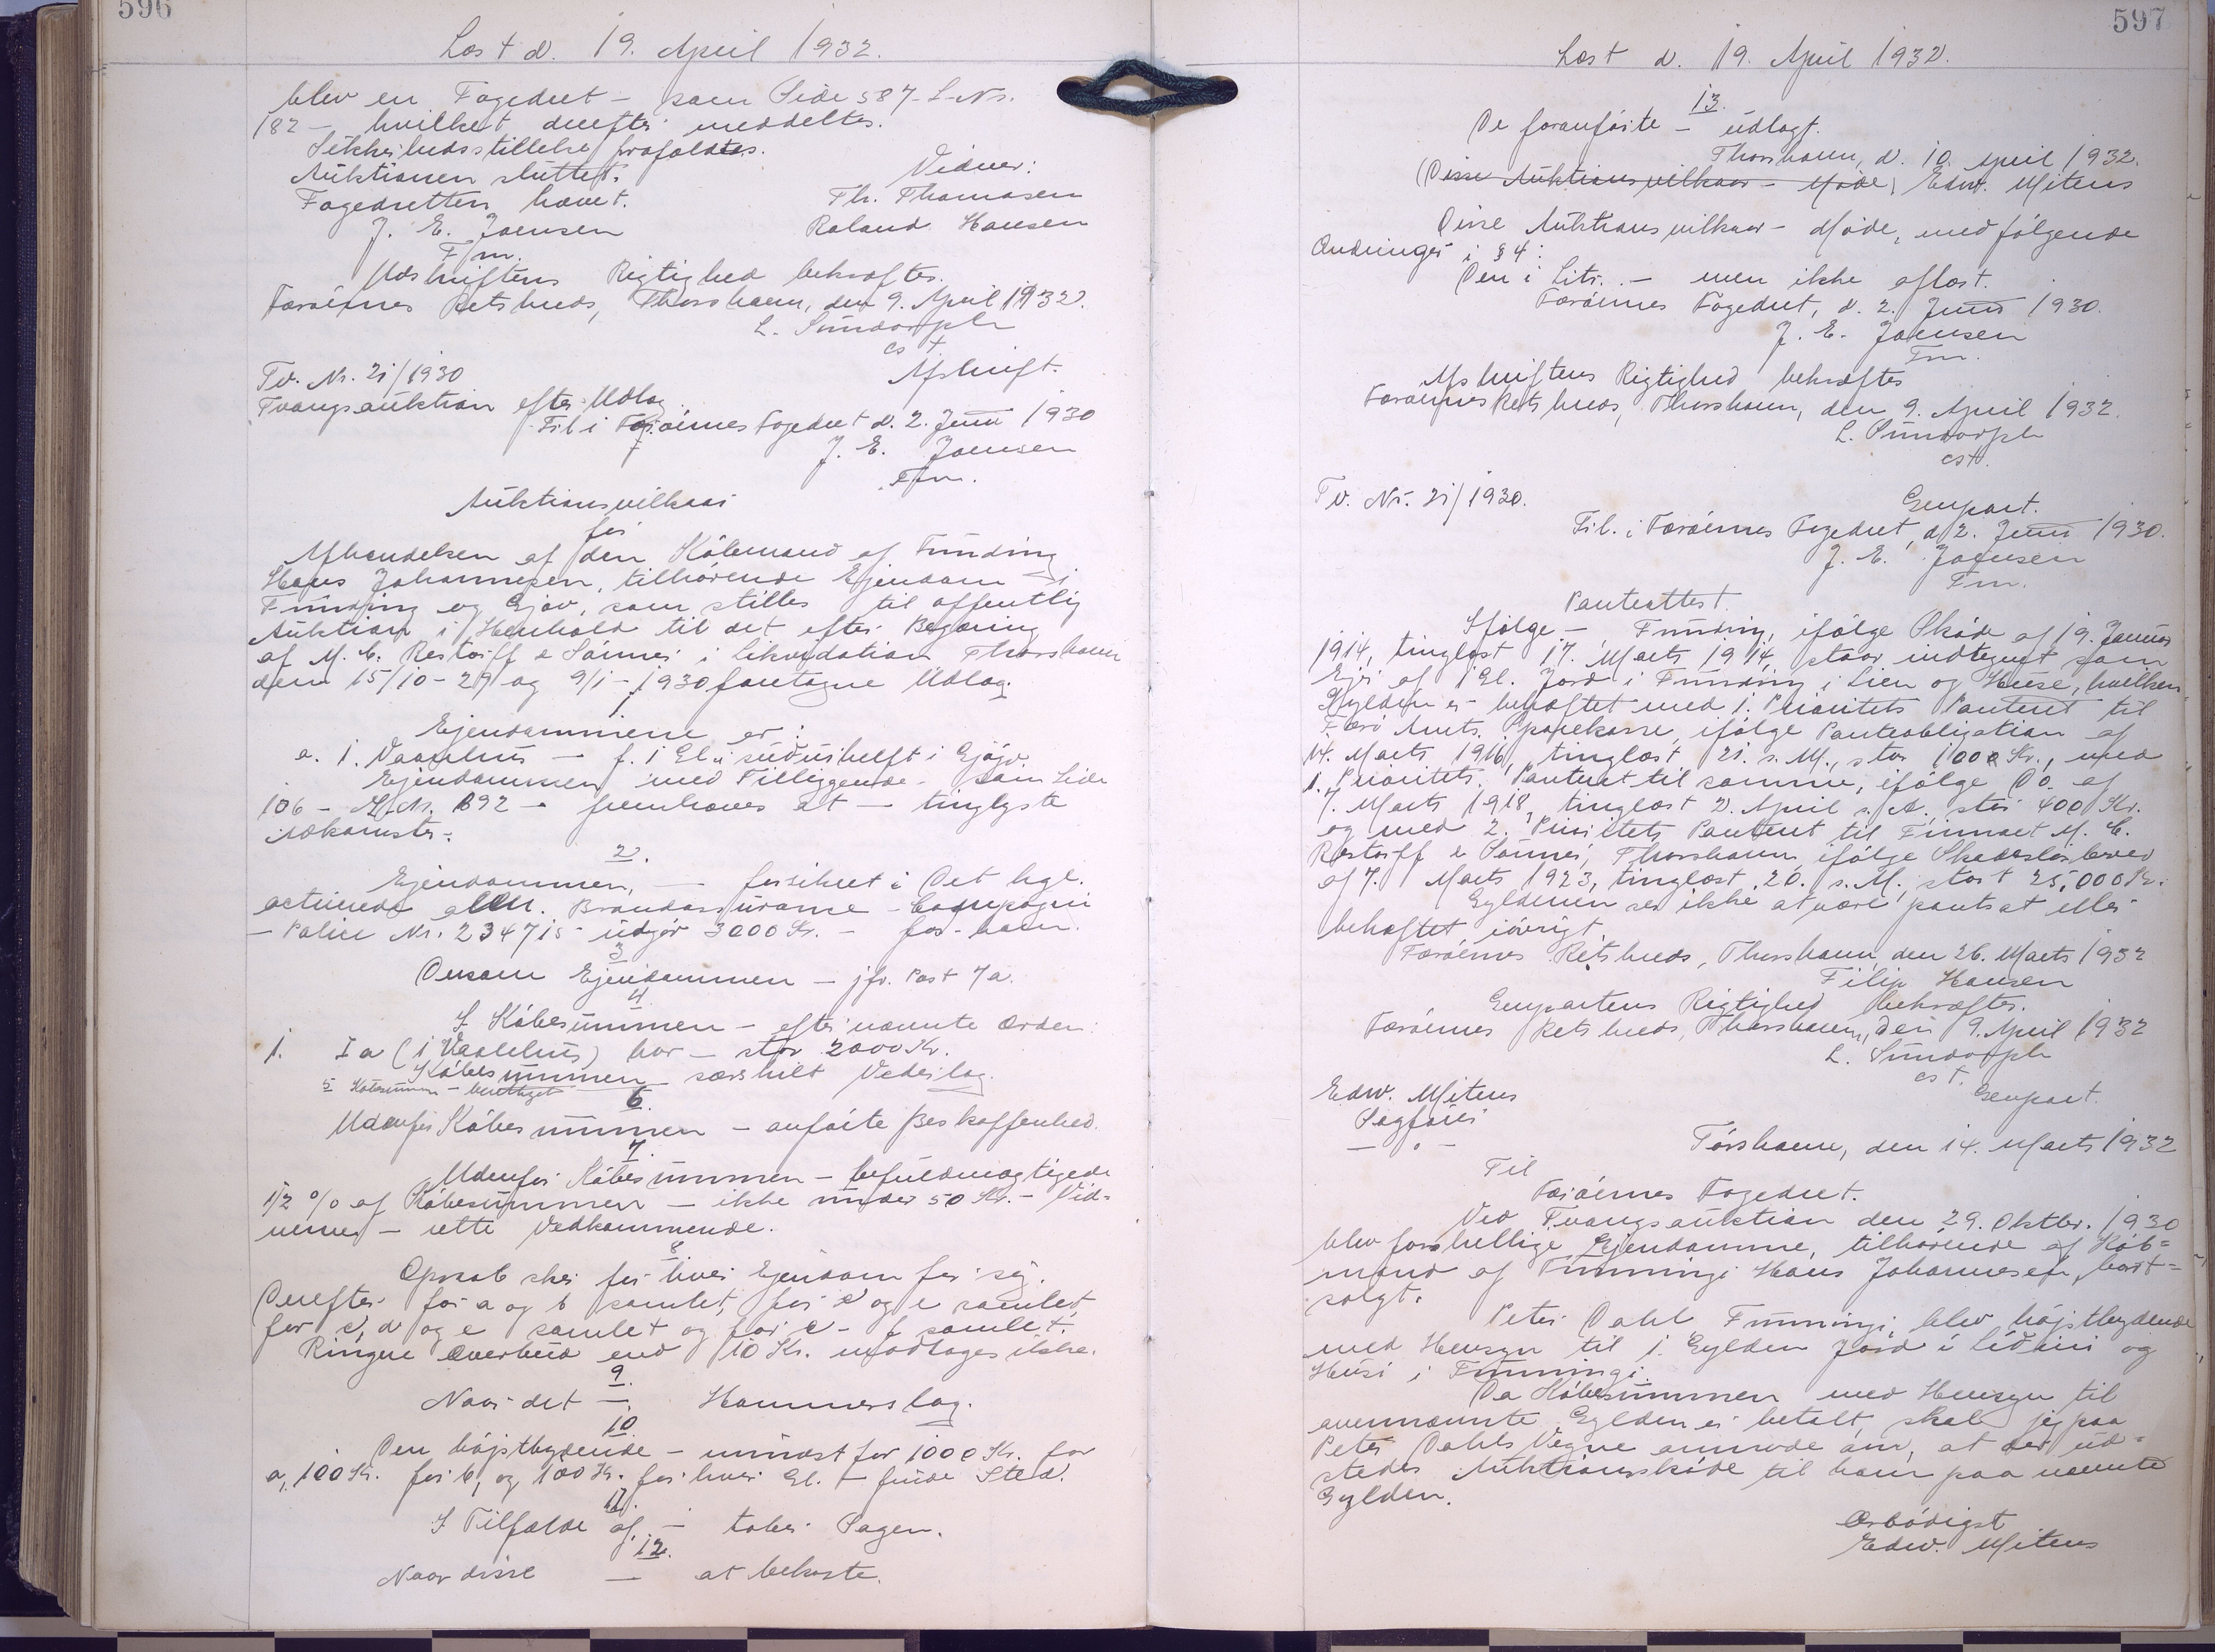 596
Læst d. 19. April 1932.
blev en Fogedret – som Side 587 - L-Nr.
182 – hvilket derefter meddeltes.
Sikkerhedsstillelse frafaldtes.
Auktionen sluttet.
Vidner:
Fogedretten hævet.
Th. Thomasen
J. E. Joensen
Roland Hansen
Fm.
Udskriftens Rigtighed bekræftes.
Færøernes Retskreds, Thorshavn, den 9. April 1932.
L. Sundorph
cst
Tv. Nr. 21/1930
Afskrift.
Tvangsauktion efter Udlæg.
Til i Færøernes Fogedret d. 2. Juni 1930
J. E. Joensen
Fm.
Auktionsvilkaar
for
Afhændelsen af den Købmand af Funding
Hans Johannesen, tilhørende Ejendom i
Funding og Gjov, som stilles til offentlig
Auktion i Henhold til det efter Begæring
af M. C. Restorff & Sønner i Likvidation Thorshavn
den 15/10 - 29 og 9/1 - 1930 foretagne Udlæg.
1
Ejendommene er:
a. 1. Vaanhus – f. 1 Gl. i suðurhelft i Gjógv.
Ejendommen med Tilliggende – som Side
106 – L.Nr. 892 – fremhæves at – tinglyste
Adkomster.
2.
Ejendommen, – forsikret i Det kgl.
octroierede alm. Brandassurance - Compagni
– Police Nr. 234715 udgør 3000 Kr. – for-ham.
3
Ønsom Ejendommen – jfr. Post 7a.
4.
I Købesummen – efternævnte Orden:
1. I a (1 Vaalehus) har – stor 2000 Kr.
Købesummen særskilt Vederlag.
5 Købesummen – berettiget
6.
Udenfor Købesummen – anførte Beskaffenhed.
7.
Udenfor Købesummen – befuldmægtigede
1/2 % af Købesummen – ikke under 50 Kr. – Vid=
nerne – rette Vedkommende.
8.
Opraab sker for hver Ejendom for sig.
Derefter for a og b samlet, for d og e samlet,
for c, d og e samlet og for c - f samlet.
Ringere Overbud end 10 Kr. modtages ikke.
9.
Naar det – Hammerslag.
10.
Den højstbydende – mindst for 1000 Kr. for
a, 100 Kr. for b, og 100 Kr. for hver Gl. – finde Sted.
11.
I Tilfælde af – taber Sagen.
12.
Naar disse – at bekoste.
597
Læst d. 19. April 1932.
13.
De foranførte – udlagt.
Thorshavn, d. 10. April 1932.
(Disse Auktionsvilkaar – Møde) Edw. Mitens
Disse Auktionsvilkaar – Møde, med følgende
Ændringer i § 4:
Den i Litr. – men ikke aflæst.
Færøernes Fogedret, d. 2. Juni 1930.
J. E. Joensen
Fm.
Afskriftens Rigtighed bekræftes
Færøernes Retskreds, Thorshavn, den 9. April 1932.
L. Sundorph
cst.
Tv. Nr. 21/1930.
Genpart.
Til. i Færøernes Fogedret, d. 2. Juni 1930.
J. E. Joensen
Fm.
Panteattest.
Ifølge – Funding, ifølge Skøde af 19. Januar
1914, tinglæst 17. Marts 1914, staar indtegnet som
Ejer af 1 Gl. Jord i Funding i Lien og Huse, hvilken
Gylden er behæftet med 1. Prioritets Panteret til
Færø Amts Sparekasse ifølge Panteobligation af
14. Marts 1916, tinglæst 21. s. M., stor 1000 Kr., med
1. Prioritets Panteret til samme, ifølge Do. af
7. Marts 1918, tinglæst 2. April s. A., stor 400 Kr.
og med 2. Prioritets Panteret til Firmaet M. C.
Restorff & Sønner, Thorshavn, ifølge Skadesløsbrev
af 7. Marts 1923, tinglæst 20. s. M., stort 25,000 Kr.
Gyldenen ses ikke at være pantsat eller
behæftet iøvrigt.
Færøernes Retskreds, Thorshavn, den 26. Marts 1932
Filip Hansen
Genpartens Rigtighed bekræftes.
Færøernes Retskreds, Thorshavn, den 9. April 1932
L. Sundorph
cst.
Edw. Mitens
Genpart.
Sagfører
Tórshavn, den 14. Marts 1932
Til
Færøernes Fogedret.
Ved Tvangsauktion den 29. Oktbr. 1930
blev forskellige Ejendomme, tilhørende af Køb=
mand af Funningi Hans Johannesen, bort=
solgt.
Peter Dahl Funningi, blev højstbydende
med Hensyn til 1. Gylden Jord i Líðini og
Húsi i Funningi.
Da Købesummen med Hensyn til
ovennævnte Gylden er betalt, skal jeg paa
Peter Dahls Vegne anmode om, at der ud=
stedes Auktionsskøde til ham paa nævnte
Gylden.
Ærbødigst
Edw. Mitens